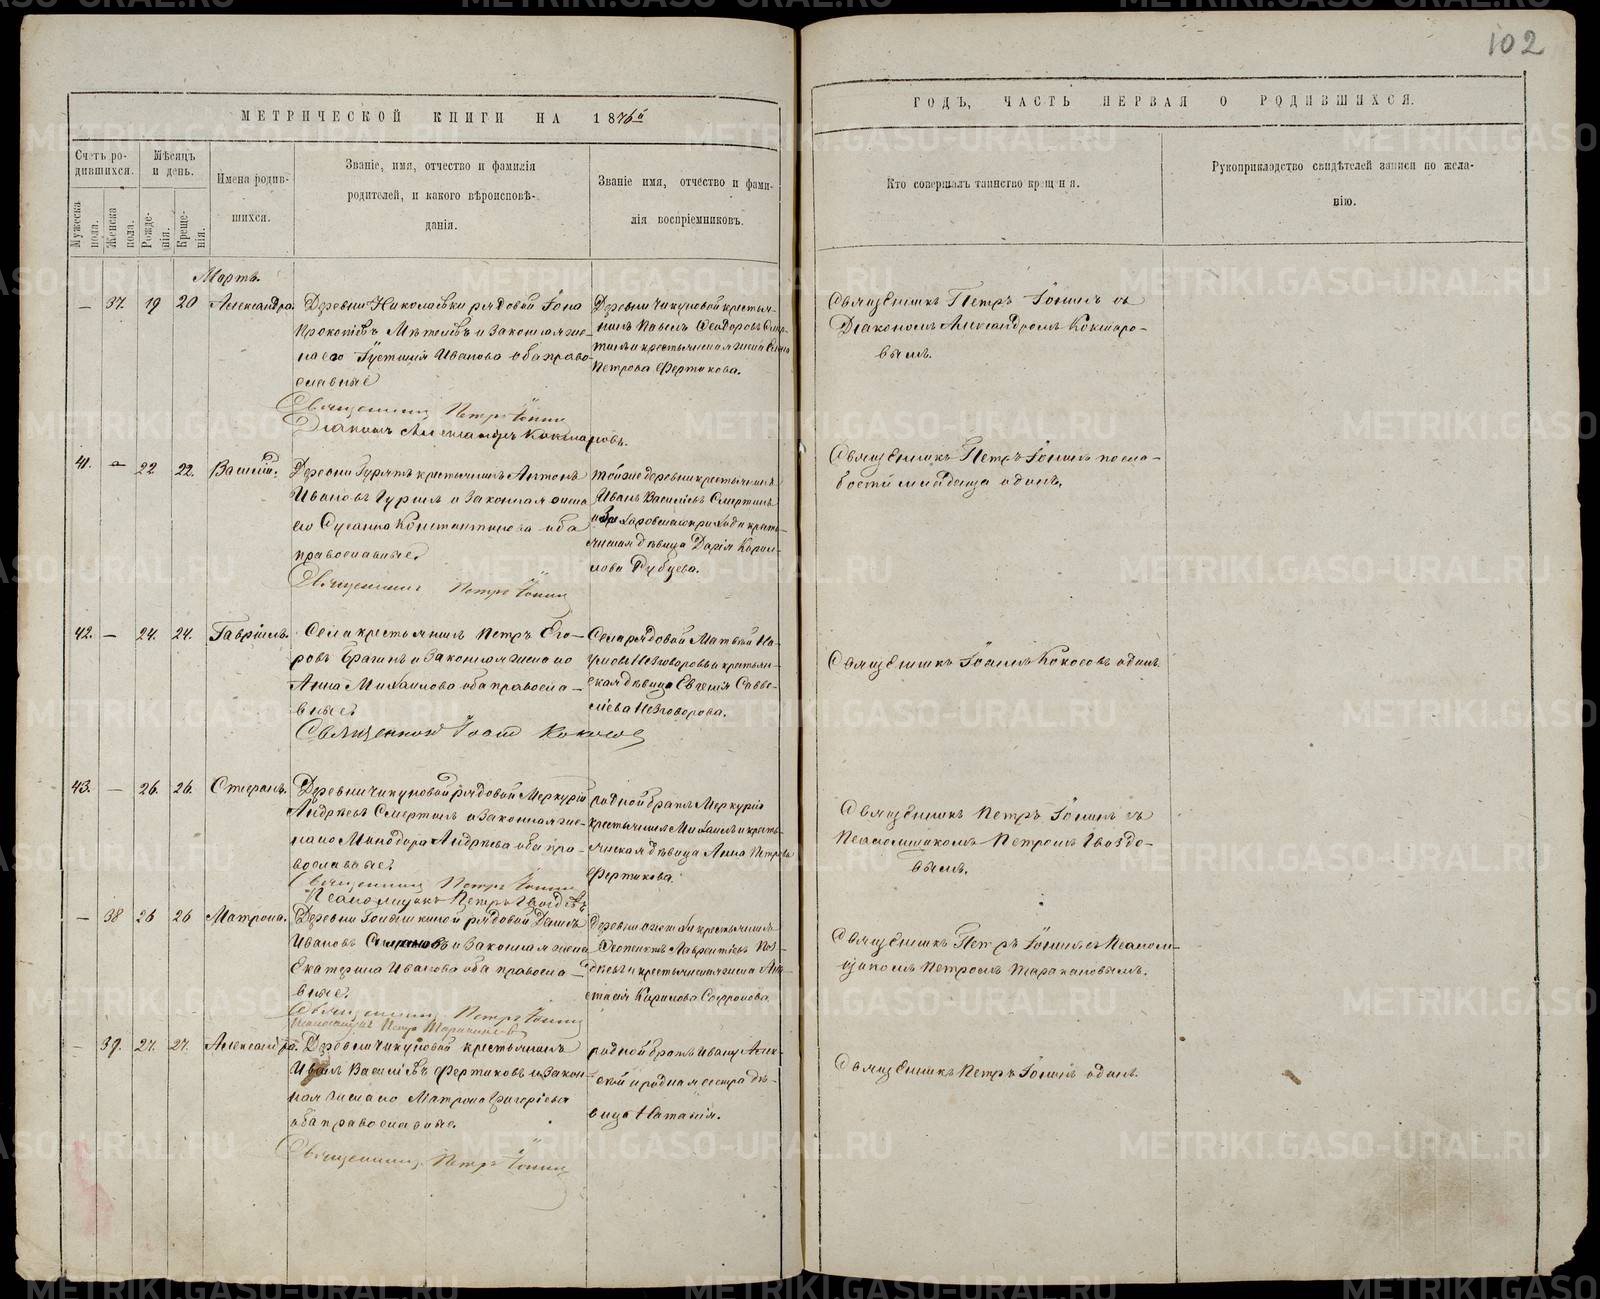 102
МЕТРИЧЕСКОЙ КНИГИ НА 1876й
ГОДЪ, ЧАСТЬ ПЕРВАЯ О РОДИВШИХСЯ.
Счетъ ро-
дившихся.
Мужеска
пола.
Женска
пола.
Мѣсяцъ
и день.
Рожде-
нія.
Креще-
нія.
Имена родив-
шихся.
Званіе, имя, отчество и фамилія
родителей, и какого вѣроисповѣ-
данія.
Званіе имя, отчество и фами-
лія воспріемниковъ.
Кто совершалъ таинство крещенія.
Рукоприкладство свидѣтелей записи по жела-
нію.
Мартъ.
— 37. 19 20 Александра.
Деревни Николаевки рядовой Іона
Прокопіевъ и законная же-
на его Іустинія Иванова оба право-
славные
Священникъ Петръ Іонинъ
Діаконъ Александръ Кокшаровъ.
Деревни Чикуновой крестья-
нинъ Павелъ Ѳеодоровъ Смер-
тинъ и крестьянская жена
Петрова Фертикова.
Священникъ Петръ Іонинъ съ
Діакономъ Александромъ Кокшаро-
вымъ.
41. — 22 22. Василій.
Деревни крестьянинъ Антонъ
Ивановъ Гуринъ и законная жена
его Сусанна Константинова оба
православные.
Священникъ Петръ Іонинъ
тойже деревни крестьянинъ
Иванъ Васильевъ Смертинъ
и прихода кресть-
янская дѣвица Дарія Карпи-
лова Рубцева.
Священникъ Петръ Іонинъ по сла-
бости младенца одинъ.
42. — 24. 24. Гавріилъ.
Села крестьянинъ Петръ Его-
ровъ Брагинъ и законная жена его
Анна Михаилова оба правосла-
вные.
Священникъ Іоаннъ Кокосовъ
Села рядовой Матвѣй На-
умовъ Незговоровъ и крестьян-
ская дѣвица Евгенія Савве-
ліева Незговорова.
Священникъ Іоаннъ Кокосовъ одинъ.
43. — 26. 26. Стефанъ.
Деревни Чикуновой рядовой Меркурій
Андреевъ Смертинъ и законная же-
на его Минодора Андреева оба пра-
вославные.
Священникъ Петръ Іонинъ
Псаломщикъ Петръ Гвоздевъ
родной братъ Меркурія
крестьянинъ Михаилъ и кресть-
янская дѣвица Анна Петрова
Фертикова.
Священникъ Петръ Іонинъ съ
Псаломщикомъ Петромъ Гвозде-
вымъ.
— 38 26 26 Матрона.
Деревни рядовой Данилъ
Ивановъ и законная жена
Екатерина Иванова оба правосла-
вные.
Священникъ Петръ Іонинъ
Псаломщикъ Петръ Таракановъ
Деревни крестьянинъ
Ѳеоктистъ Лаврентіевъ Поз-
дѣевъ и крестьянская жена Ана-
стасія Карпова Софронова.
Священникъ Петръ Іонинъ съ Псалом-
щикомъ Петромъ Таракановымъ.
— 39. 27. 27. Александра.
Деревни Чикуновой крестьянинъ
Иванъ Васильевъ Фертиковъ и закон-
ная жена его Матрона Григоріева
оба православные.
Священникъ Петръ Іонинъ
родной братъ Ивану Алек-
сѣй и родная сестра дѣ-
вица Наталія.
Священникъ Петръ Іонинъ одинъ.
METRIKI.GASO-URAL.RU